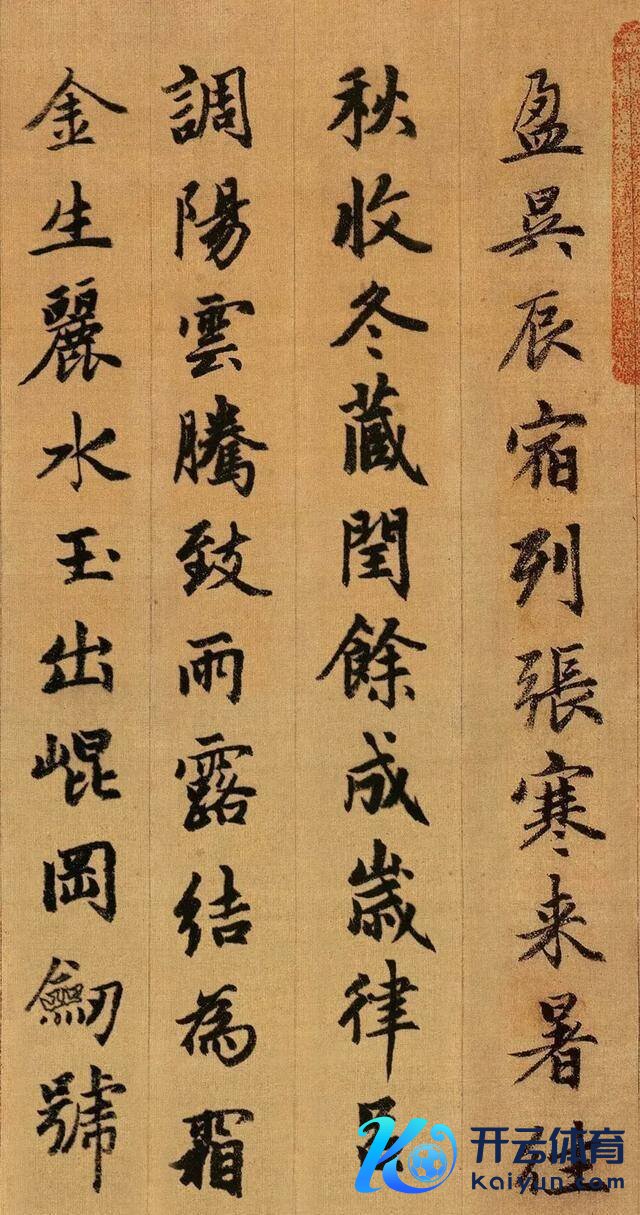 盈昃辰宿列張寒来暑往
秋收冬藏閏餘成歲律呂
調陽雲騰致雨露結為霜
金生麗水玉出崐岡劔號
开云体育
kaiyun.com